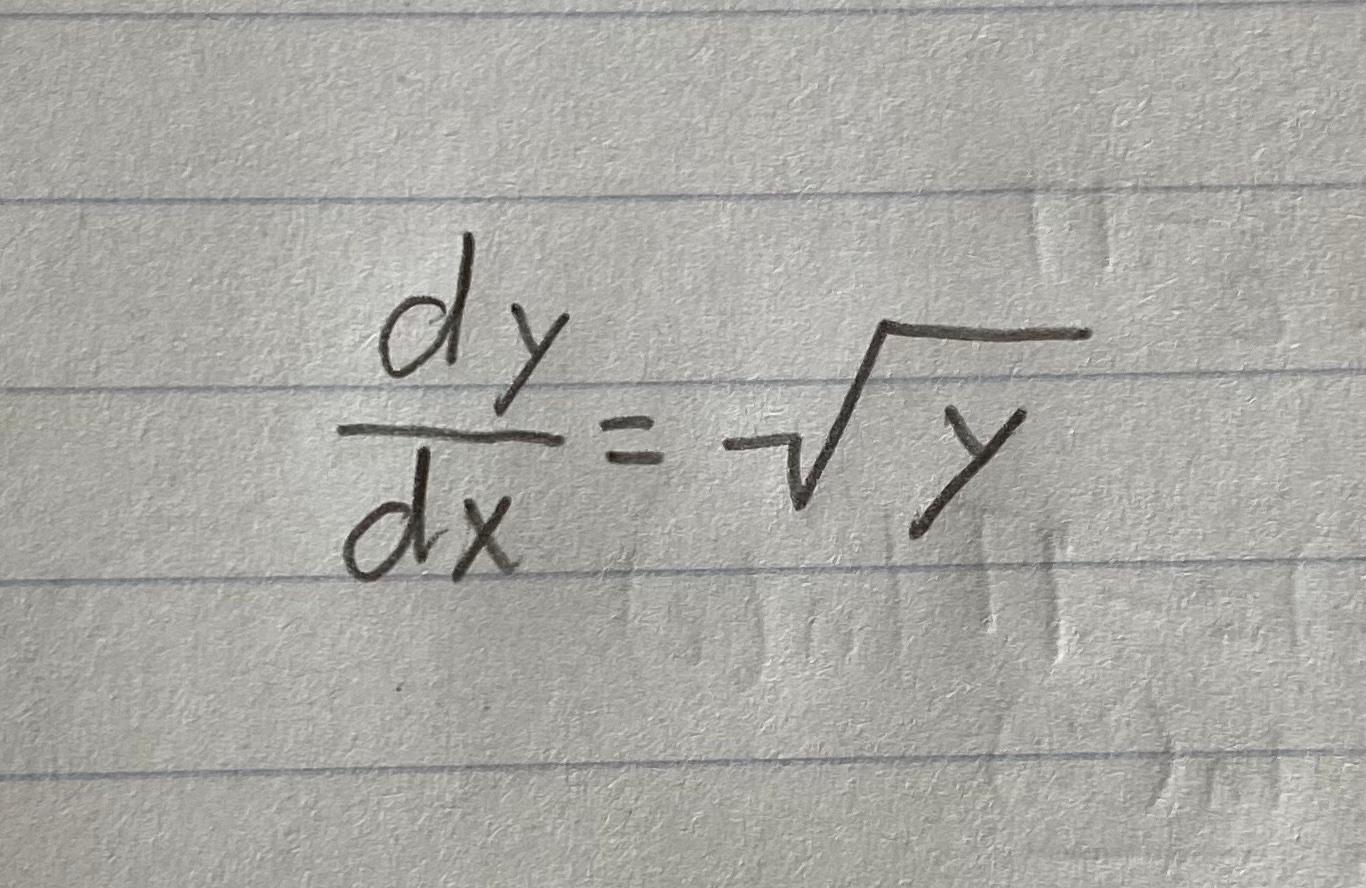 dy/dx = √y